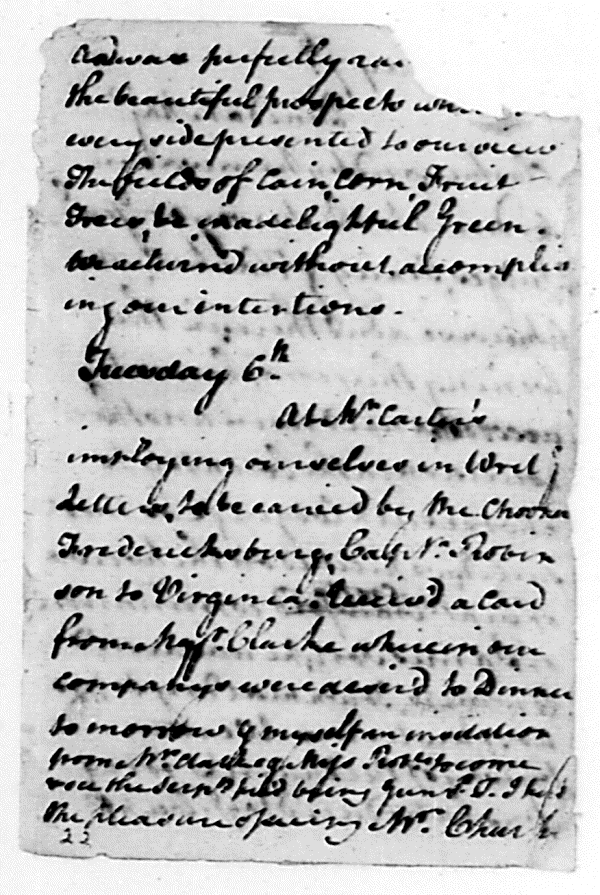 was perfectly ra
the beautiful prospects wh
every side presented to our view
The fields of Cain, Corn, Fruit
Trees, &c in a delightful Green.
We return'd without accomplis
ing our intentions.
Tuesday 6th
At Mr. Carter's
imploying ourselves in Writ
Letters to be carried by the Chooner
Fredericksburg Capt. Robin
son to Virginia. Receiv'd a Card
from Majr. Clarke wherein our
companys were desir'd to Dinner
to morrow & myself an invitation
from Mrs. Clarke & Miss Robts. to come
see the Serpts. fir'd being Gun P. T. I had
the pleasure of seeing
22